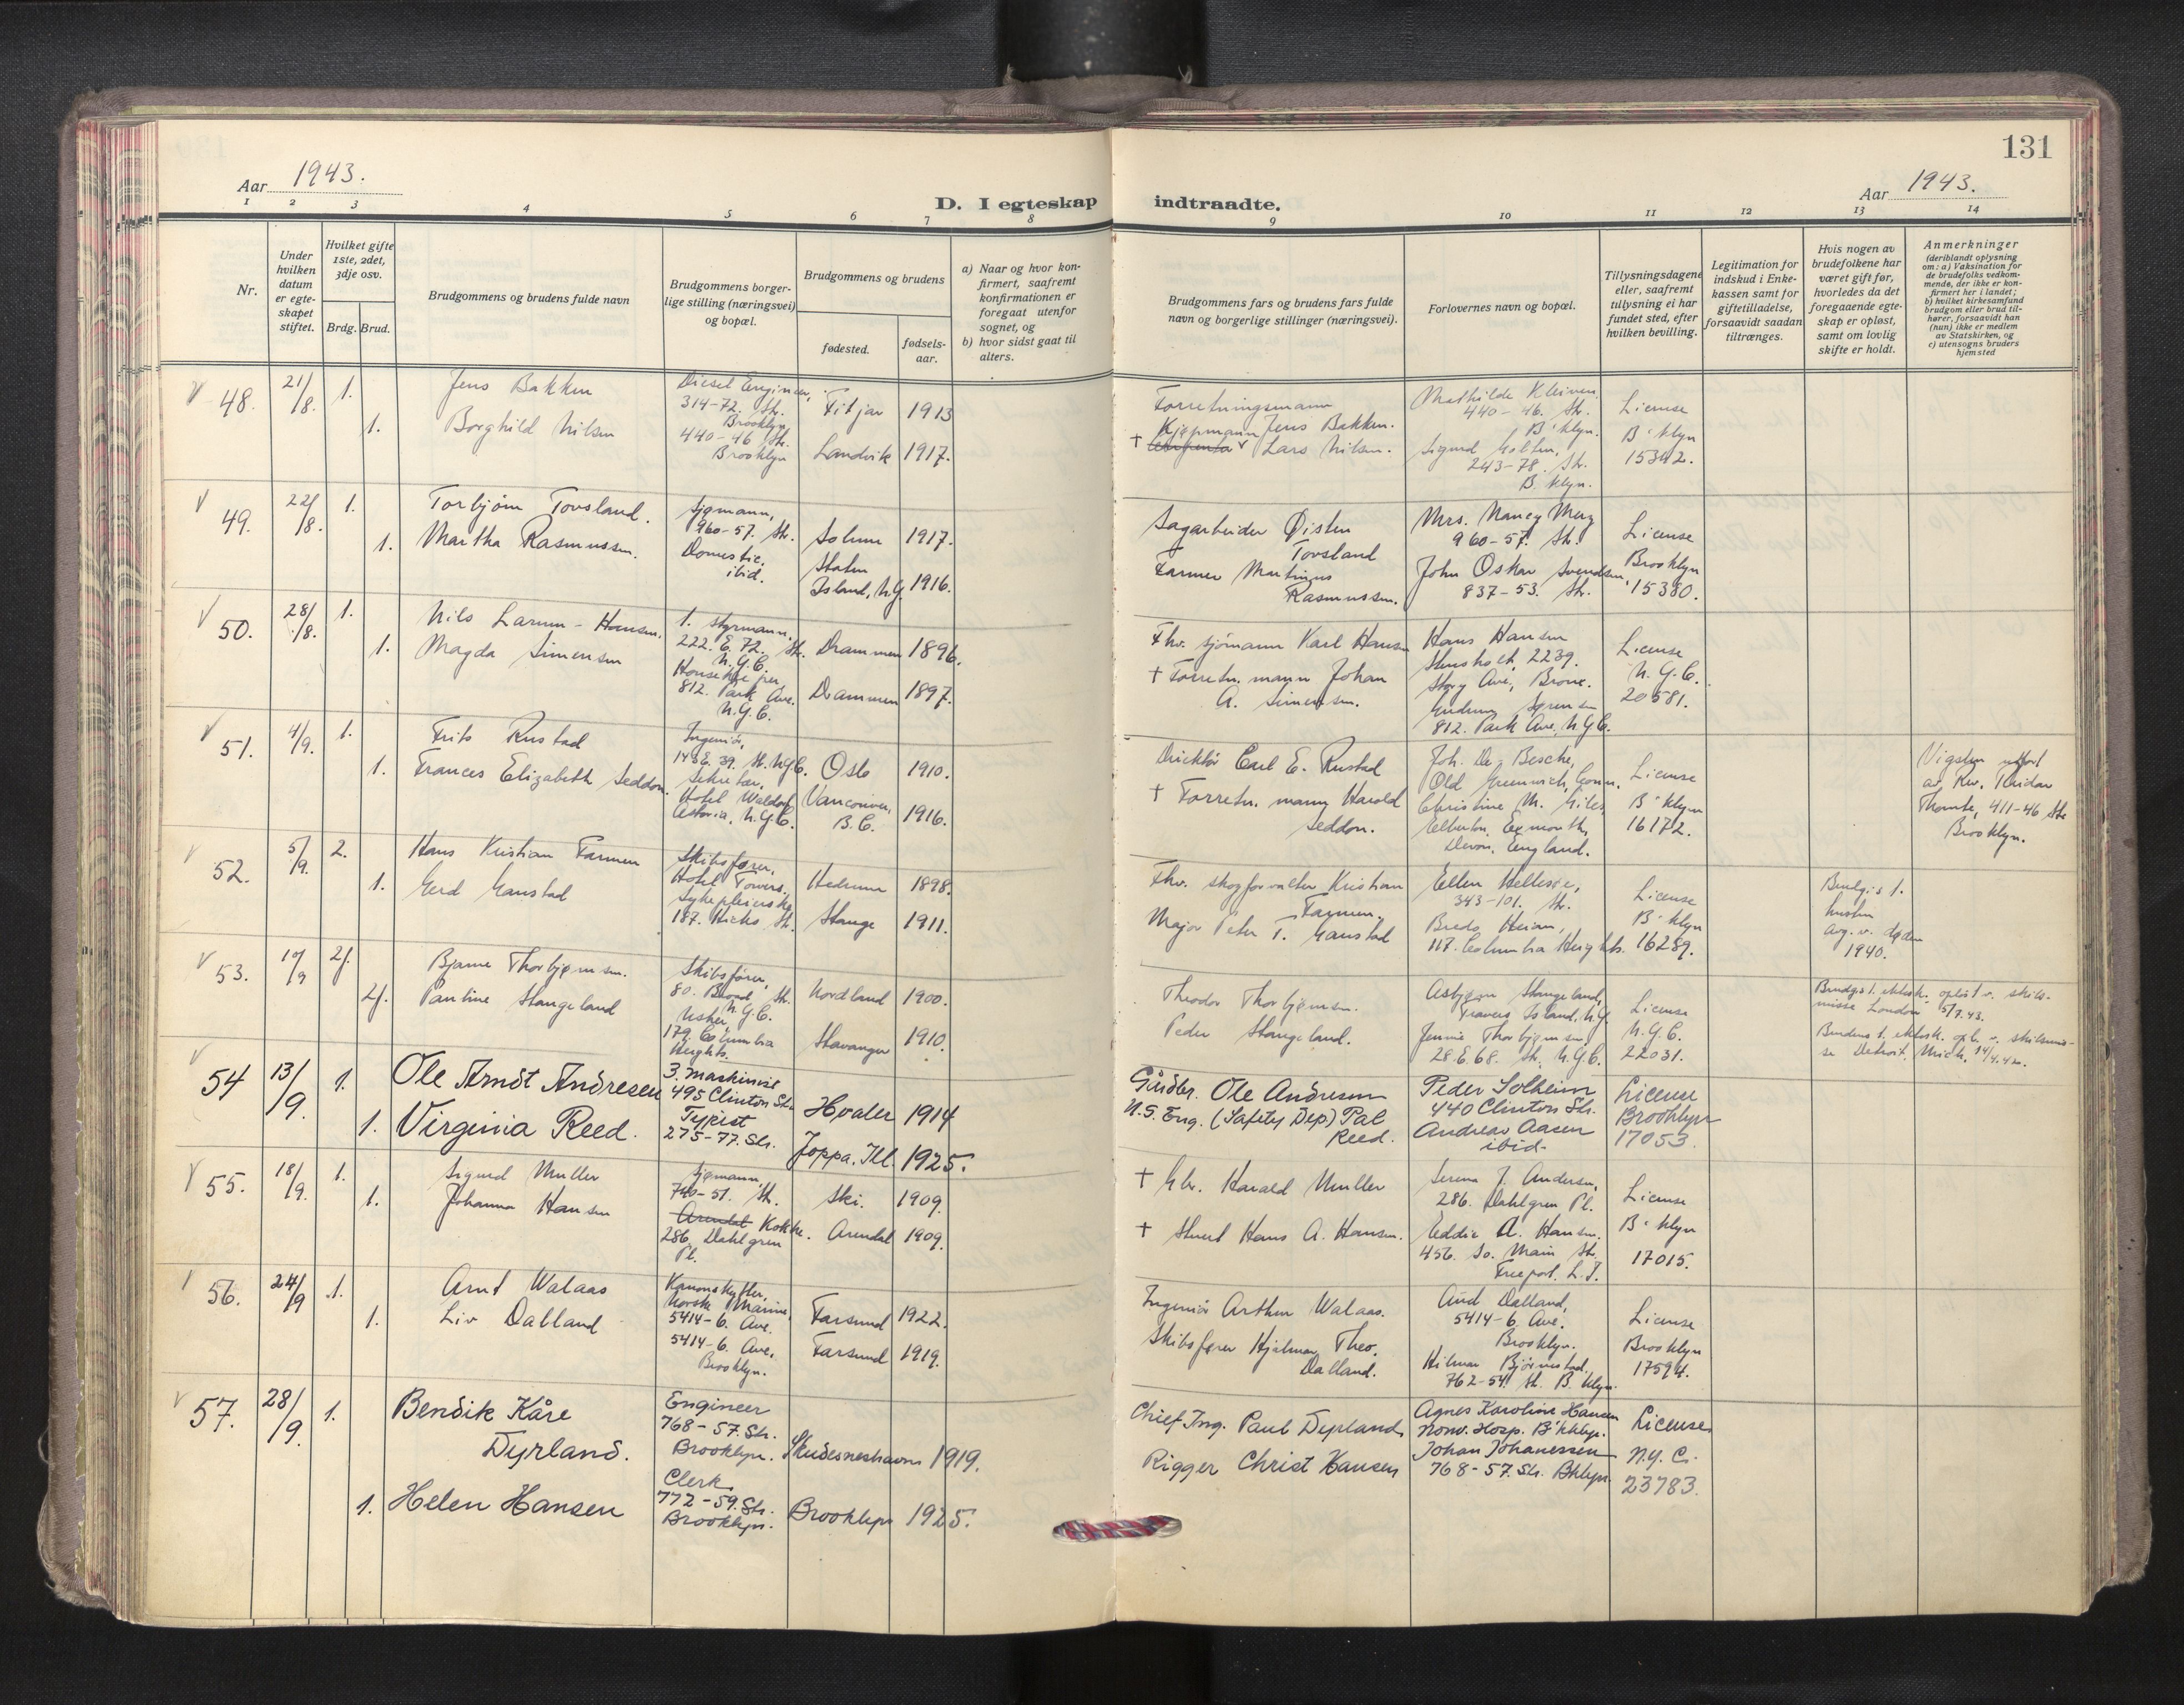 131
Aar 1943.
D. I egteskap indtraadte.
Aar 1943.
1 2 3 4 5 6 7 8 9 10 11 12 13 14
Nr.
Under hvilken datum er egteskapet stiftet.
Hvilket gifte 1ste, 2det, 3dje osv.
Brdg. Brud.
Brudgommens og brudens fulde navn
Brudgommens borgerlige stilling (næringsvei) og bopæl.
Brudgommens og brudens
fødested.
fødselsaar.
a) Naar og hvor konfirmert, saafremt konfirmationen er foregaat utenfor sognet, og
b) hvor sidst gaat til alters.
Brudgommens fars og brudens fars fulde navn og borgerlige stillinger (næringsvei).
Forlovernes navn og bopæl.
Tillysningsdagene eller, saafremt tillysning ei har fundet sted, efter hvilken bevilling.
Legitimation for indskud i Enkekassen samt for giftetilladelse, forsaavidt saadan tiltrænges.
Hvis nogen av brudefolkene har været gift før, hvorledes da det foregaaende egteskap er opløst, samt om lovlig skifte er holdt.
Anmerkninger (deriblandt oplysning om: a) Vaksination for de brudefolks vedkommende, der ikke er konfirmert her i landet; b) hvilket kirkesamfund brudgom eller brud tilhører, forsaavidt han (hun) ikke er medlem av Statskirken, og c) utensogns bruders hjemsted
V 48. 21/8. 1.
Jens Bakken
Diesel Engineer,
314-72. Str.
Brooklyn
Fitjar 1913
1. Borghild Nilsen
440-46 Str.
Brooklyn
Landvik 1917.
Forretningsmann
Jens Bakken.
† Kjøpmann Lars Nilsen.
Mathilde Kleiven
440-46. Str.
B'klyn.
Sigurd
243-78. Str.
B.klyn.
License
B'klyn
15342.
V 49. 22/8. 1.
Torbjørn Tovsland.
Sjømann,
960-57. Str.
Solum 1917.
1. Martha Rasmussen.
Domestic.
ibid.
Staten
Island, N.Y. 1916.
Sagarbeider Øisten
Tovsland
Farmer Martinus
Rasmussen.
Mrs. Nancy
960-57. Str.
John Oskar Svendsen,
837-53. Str.
License
Brooklyn
15380.
V 50. 28/8. 1.
Nils Larum-Hansen.
1. styrmann,
222. E. 72. Str.
N.Y.C.
Drammen 1896.
1. Magda Simensen
Housekeeper,
812. Park Ave.
N.Y.C.
Drammen 1897.
Fhv. sjømann Karl Hansen
† Forretn. mann Johan
A. Simensen.
Hans Hansen
Stensholt, 2239.
Ave, Bronx.
Gudrun Sørensen
812. Park Ave, N.Y.C.
License
N.Y.C.
20581.
V 51. 4/9. 1.
Frits Rustad
Ingeniør,
148 E. 39. St. N.Y.C.
Oslo 1910.
1. Frances Elizabeth Seddon.
Sekretær,
Hotel Waldorf
Astoria, N.Y.C.
Vancouver,
B.C. 1916.
Direktør Carl E. Rustad
† Forretn. mann Harold
Seddon.
Joh. De Besche,
Old Greenwich, Conn.
Christine M. Giles,
Exmouth,
Devon, England.
License
B'klyn
16172.
Vigslen utført
av Rev.
411-46 Str.
Brooklyn.
V 52. 5/9. 2.
Hans Kristian Farmen
Skibsfører,
Hotel Towers.
Hedrum 1898.
1. Gerd Gaustad
Sykepleierske
187. Hicks Str.
Stange 1911.
Fhv. skogforvalter Kristian
Farmen.
Major Peter T. Gaustad
Ellen Hellesøe,
343-101. Str.
Heian,
117. Columbia Heights.
License
B'klyn
16289.
Brudg.s 1.
hustru
avg. v. døden
1940.
V 53. 10/9 2.
Bjarne Thorbjørnsen.
Skibsfører,
80. Broad Str.
N.Y.C.
Nordland 1900.
2. Pauline Stangeland
Usher,
179. Columbia
Heights.
Stavanger 1910.
Theodor Thorbjørnsen.
Peder Stangeland.
Asbjørn Stangeland,
Travers Island, N.Y.
Jennie Thorbjørnsen,
28. E. 68. Str. N.Y.C.
License
N.Y.C.
22031.
Brudg.s 1. ektesk. opløst v. skilsmisse London 5/7.43.
Brudens 1. ektesk. opl. v. skilsmisse Detroit, Mich. 14/4.42.
V 54 13/9. 1.
Ole Arndt Andresen
3. Maskinist
495 Clinton Str.
Hvaler 1914
1. Virginia Reed.
Typist
275-77. Str.
Joppa, Ill. 1925.
Gårdbr. Ole Andresen
U.S. Eng. (Safety Dep) Pal
Reed.
Peder Solheim
440 Clinton Str.
Andreas Aasen
ibid-
License
Brooklyn
17053.
V 55. 18/9. 1.
Sigurd Muller
Sjømann,
740-51. Str.
Ski. 1909.
1. Johanna Hansen
Arendal Kokke.
286, Dahlgren
Pl.
Arendal 1909.
† Gbr. Harald Muller
† Stuert Hans A. Hansen.
Serena J. Andersen,
286. Dahlgren Pl.
Eddie A. Hansen.
456. So. Main Str.
Freeport. L.I.
License
B'klyn
17015.
56. 24/9 1.
Arnt Walaas
Kanonskytter,
Norsk Marine,
5414-6. Ave.
Farsund 1922.
1. Liv Dalland
5414-6. Ave,
Brooklyn.
Farsund 1919.
Ingeniør Arthur Walaas.
Skibsfører Hjalmar Theo.
Dalland.
Aud Dalland,
5414-6. Ave.
Brooklyn.
Hilmar Bjørnestad,
762-54. St. B.klyn.
License
Brooklyn
17594.
V 57. 28/9. 1.
Bendik Kåre
Dyrland.
Engineer
768-57. Str.
Brooklyn.
Skudesneshavn 1919.
1. Helen Hansen
Clerk
772-59. Str.
Brooklyn.
Brooklyn 1925.
Chief Ing. Paul Dyrland
Rigger Christ Hansen
Agnes Karoline Hansen
Norw. Hosp. B'khlyn.
Johan Johanessen
768-57. Str. Bklyn.
License
N.Y.C.
23783.